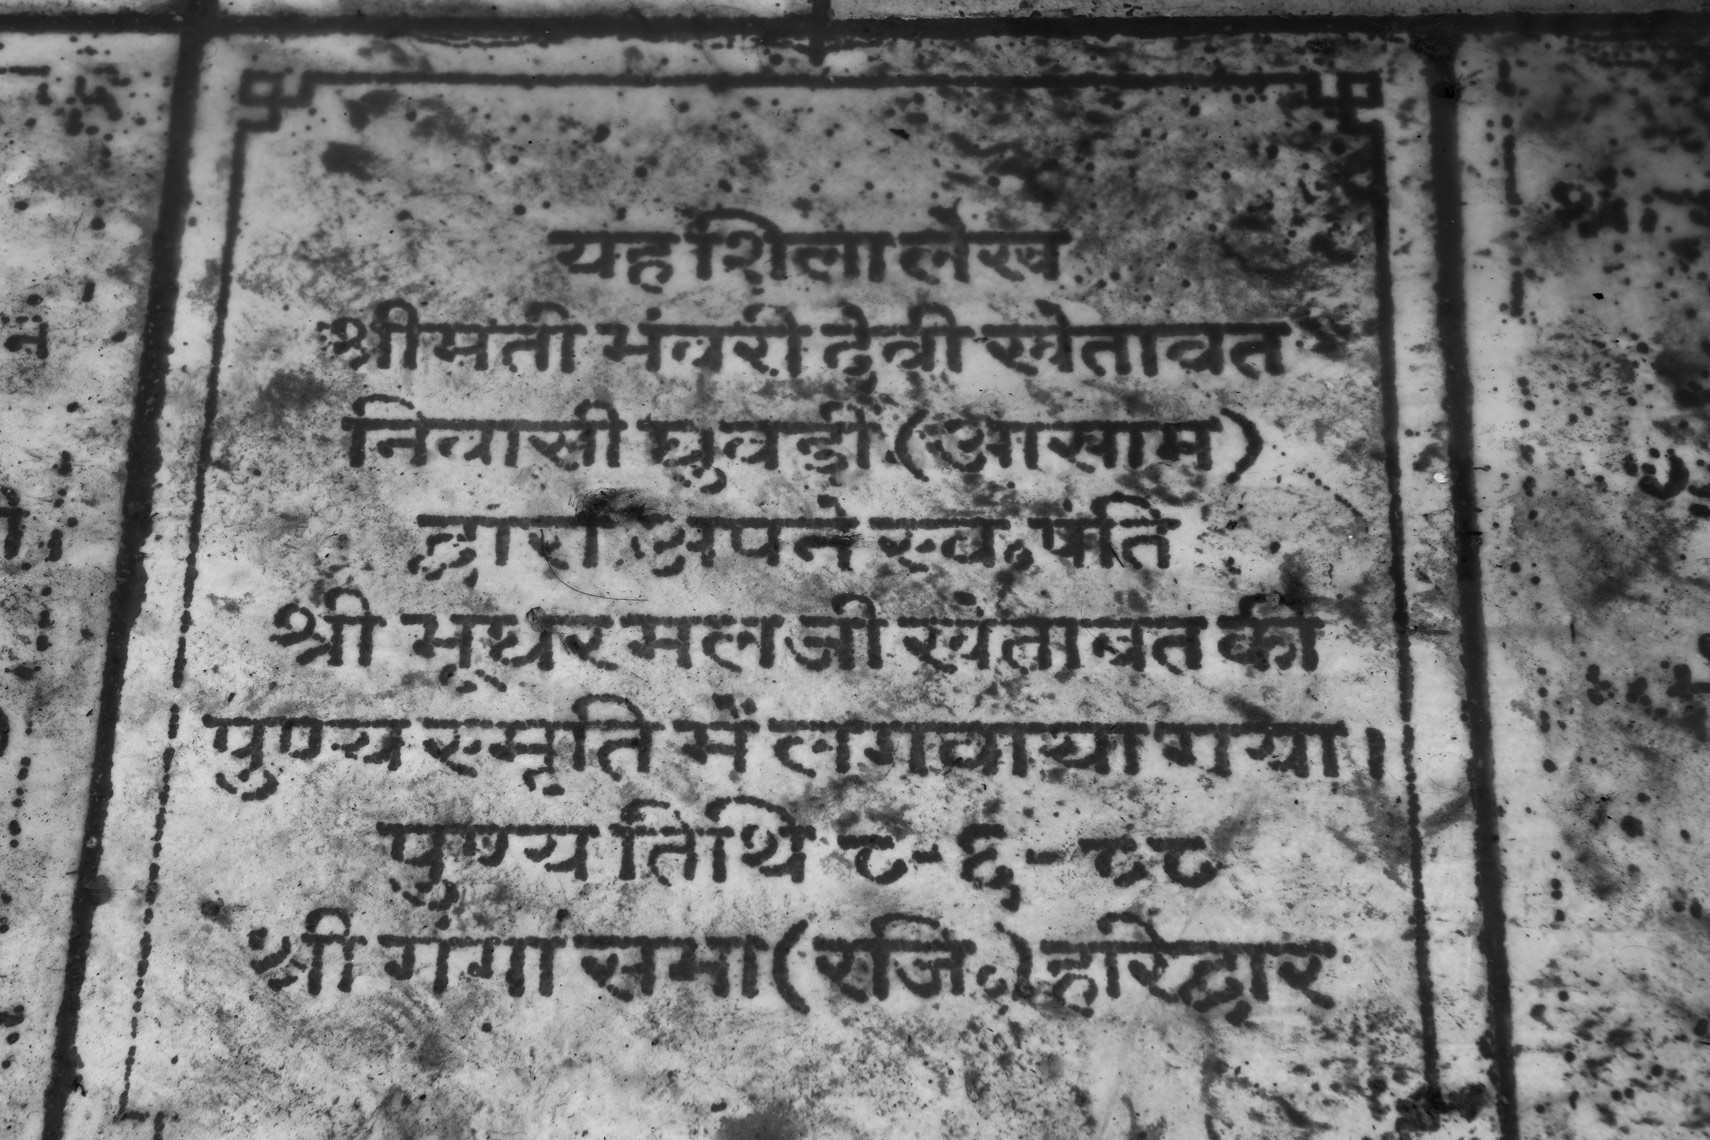 यह शिलालेख
श्रीमती भंवरी देवी खेतावत
निवासी घुवड़ी (आसाम)
द्वारा अपने स्व. पति
श्री भूधरमलजी खेतावत की
पुण्य स्मृति में लगवाया गया।
पुण्य तिथि ८-६-८८
श्री गंगा सभा (रजि.) हरिद्वार